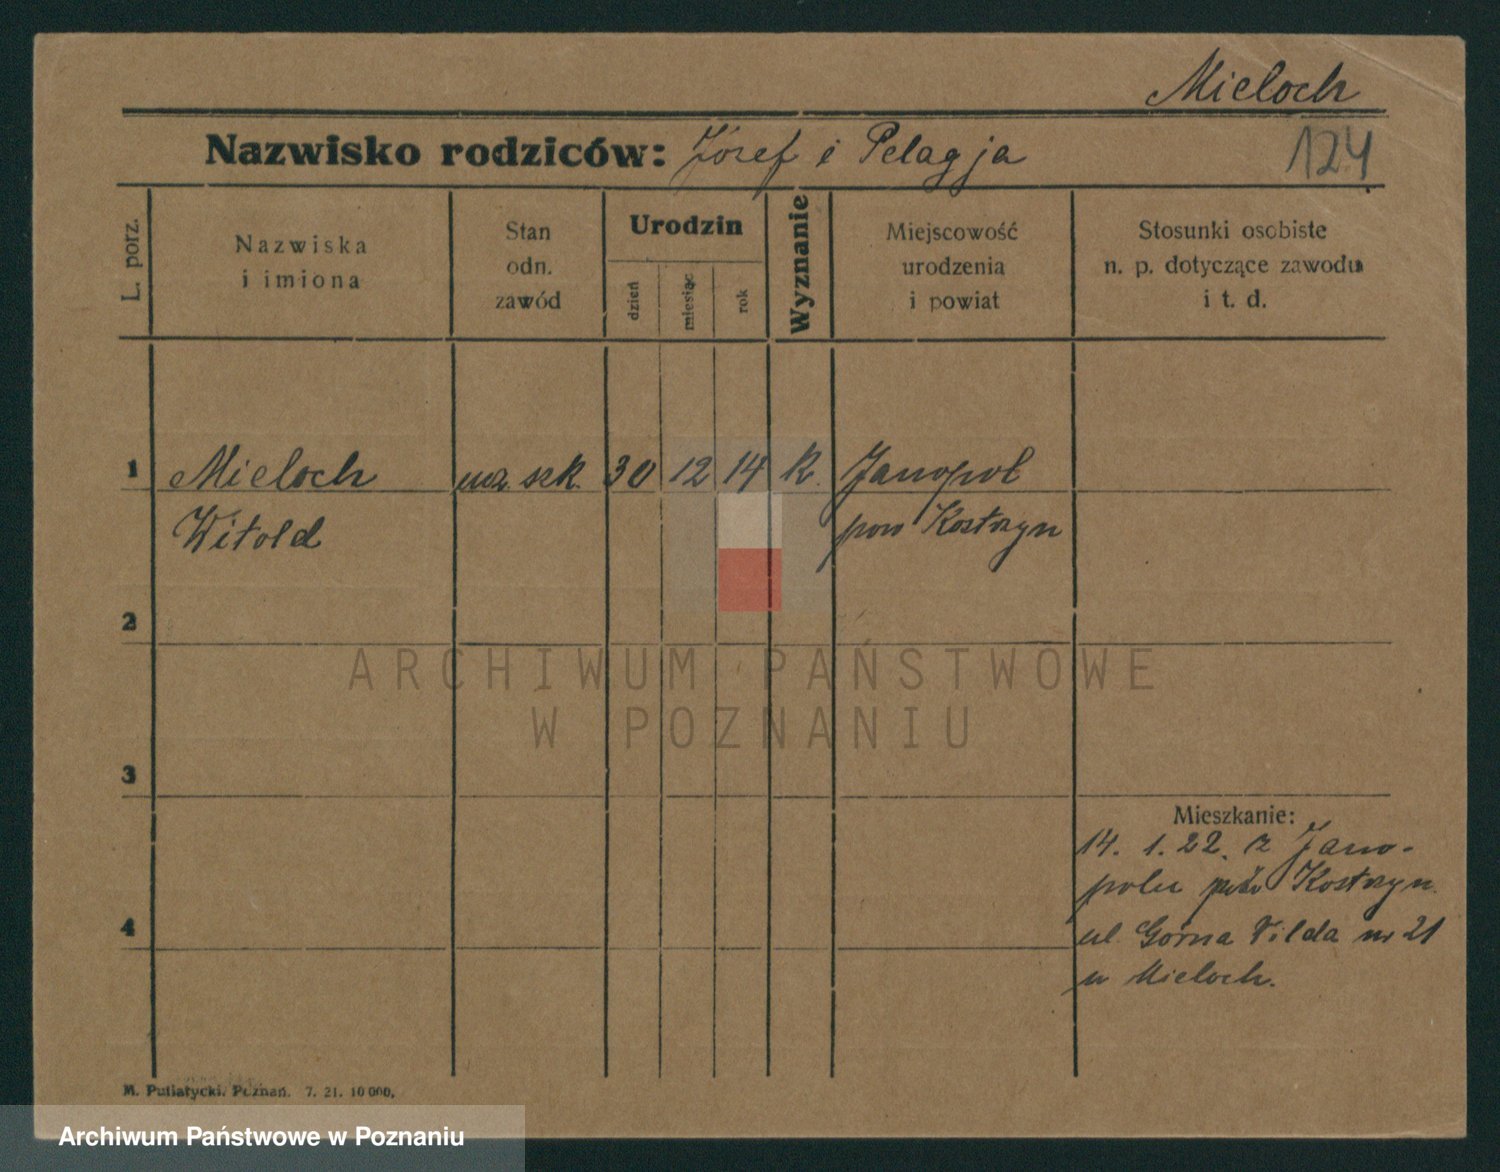 Mieloch
Nazwisko rodziców: Józef i Pelagja
124
L. porz.
Nazwiska
i imiona
Stan
odn.
zawód
Urodzin
dzień
miesiąc
rok
Wyznanie
Miejscowość
urodzenia
i powiat
Stosunki osobiste
n. p. dotyczące zawodu
i t. d.
1 Mieloch ucz. szk. 30 12 14 k. Janopol
Witold pow Kostrzyn
2
ARCHIWUM PAŃSTWOWE
W POZNANIU
3
Mieszkanie:
14. 1. 22. z Jano-
polu pow Kostrzyn.
4
ul. Górna Vilda nr 21
u Mieloch.
M. Putiatycki. Poznań. 7. 21. 10 000.
Archiwum Państwowe w Poznaniu